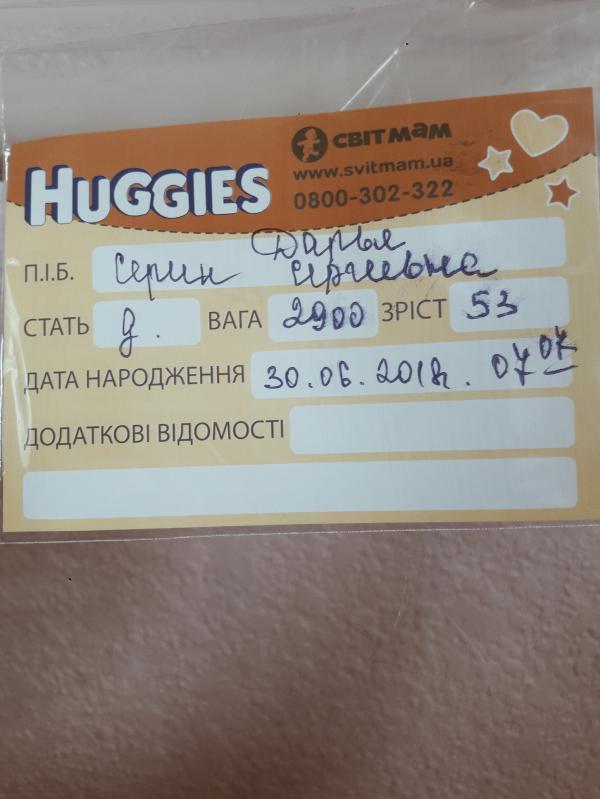 HUGGIES
СВІТ МАМ
www.svitmam.ua
0800-302-322
П.І.Б. Серин Дарья Сергиевна
СТАТЬ д. ВАГА 2900 ЗРІСТ 53
ДАТА НАРОДЖЕННЯ 30.06.2018г. 07 07
ДОДАТКОВІ ВІДОМОСТІ